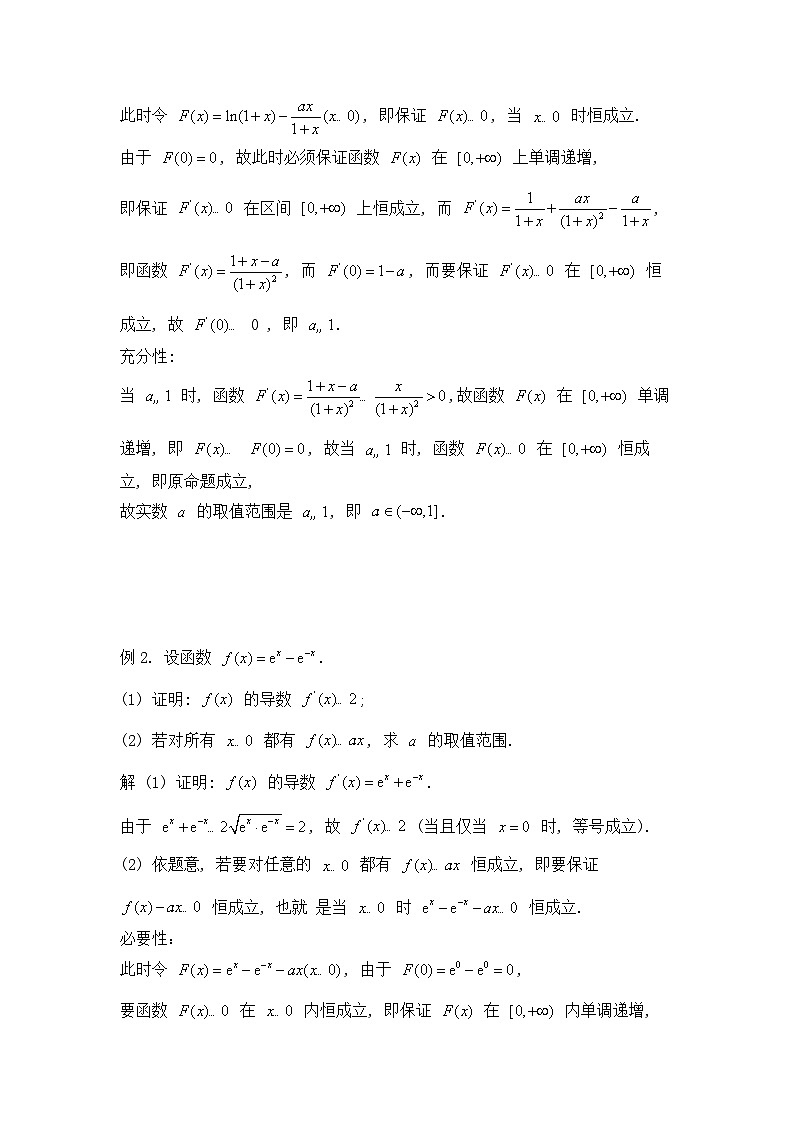 此时令 F(x) = ln(1+x) − ax/(1+x) (x… 0), 即保证 F(x)… 0, 当 x… 0 时恒成立.
由于 F(0) = 0, 故此时必须保证函数 F(x) 在 [0,+∞) 上单调递增,
即保证 F'(x)… 0 在区间 [0,+∞) 上恒成立, 而 F'(x) = 1/(1+x) + ax/(1+x)² − a/(1+x),
即函数 F'(x) = (1+x−a)/(1+x)², 而 F'(0) = 1−a, 而要保证 F'(x)… 0 在 [0,+∞) 恒
成立, 故 F'(0)… 0 , 即 a,, 1.
充分性:
当 a,, 1 时, 函数 F'(x) = (1+x−a)/(1+x)² … x/(1+x)² > 0,故函数 F(x) 在 [0,+∞) 单调
递增, 即 F(x)… F(0) = 0, 故当 a,, 1 时, 函数 F(x)… 0 在 [0,+∞) 恒成
立, 即原命题成立,
故实数 a 的取值范围是 a,, 1, 即 a∈(−∞,1].
例 2. 设函数 f(x) = eˣ − e⁻ˣ.
(1) 证明: f(x) 的导数 f'(x)… 2;
(2) 若对所有 x… 0 都有 f(x)… ax, 求 a 的取值范围.
解 (1) 证明: f(x) 的导数 f'(x) = eˣ + e⁻ˣ.
由于 eˣ + e⁻ˣ… 2√(eˣ·e⁻ˣ) = 2, 故 f'(x)… 2 (当且仅当 x = 0 时, 等号成立).
(2) 依题意, 若要对任意的 x… 0 都有 f(x)… ax 恒成立, 即要保证
f(x) − ax… 0 恒成立, 也就 是当 x… 0 时 eˣ − e⁻ˣ − ax… 0 恒成立.
必要性:
此时令 F(x) = eˣ − e⁻ˣ − ax(x… 0), 由于 F(0) = e⁰ − e⁰ = 0,
要函数 F(x)… 0 在 x… 0 内恒成立, 即保证 F(x) 在 [0,+∞) 内单调递增,